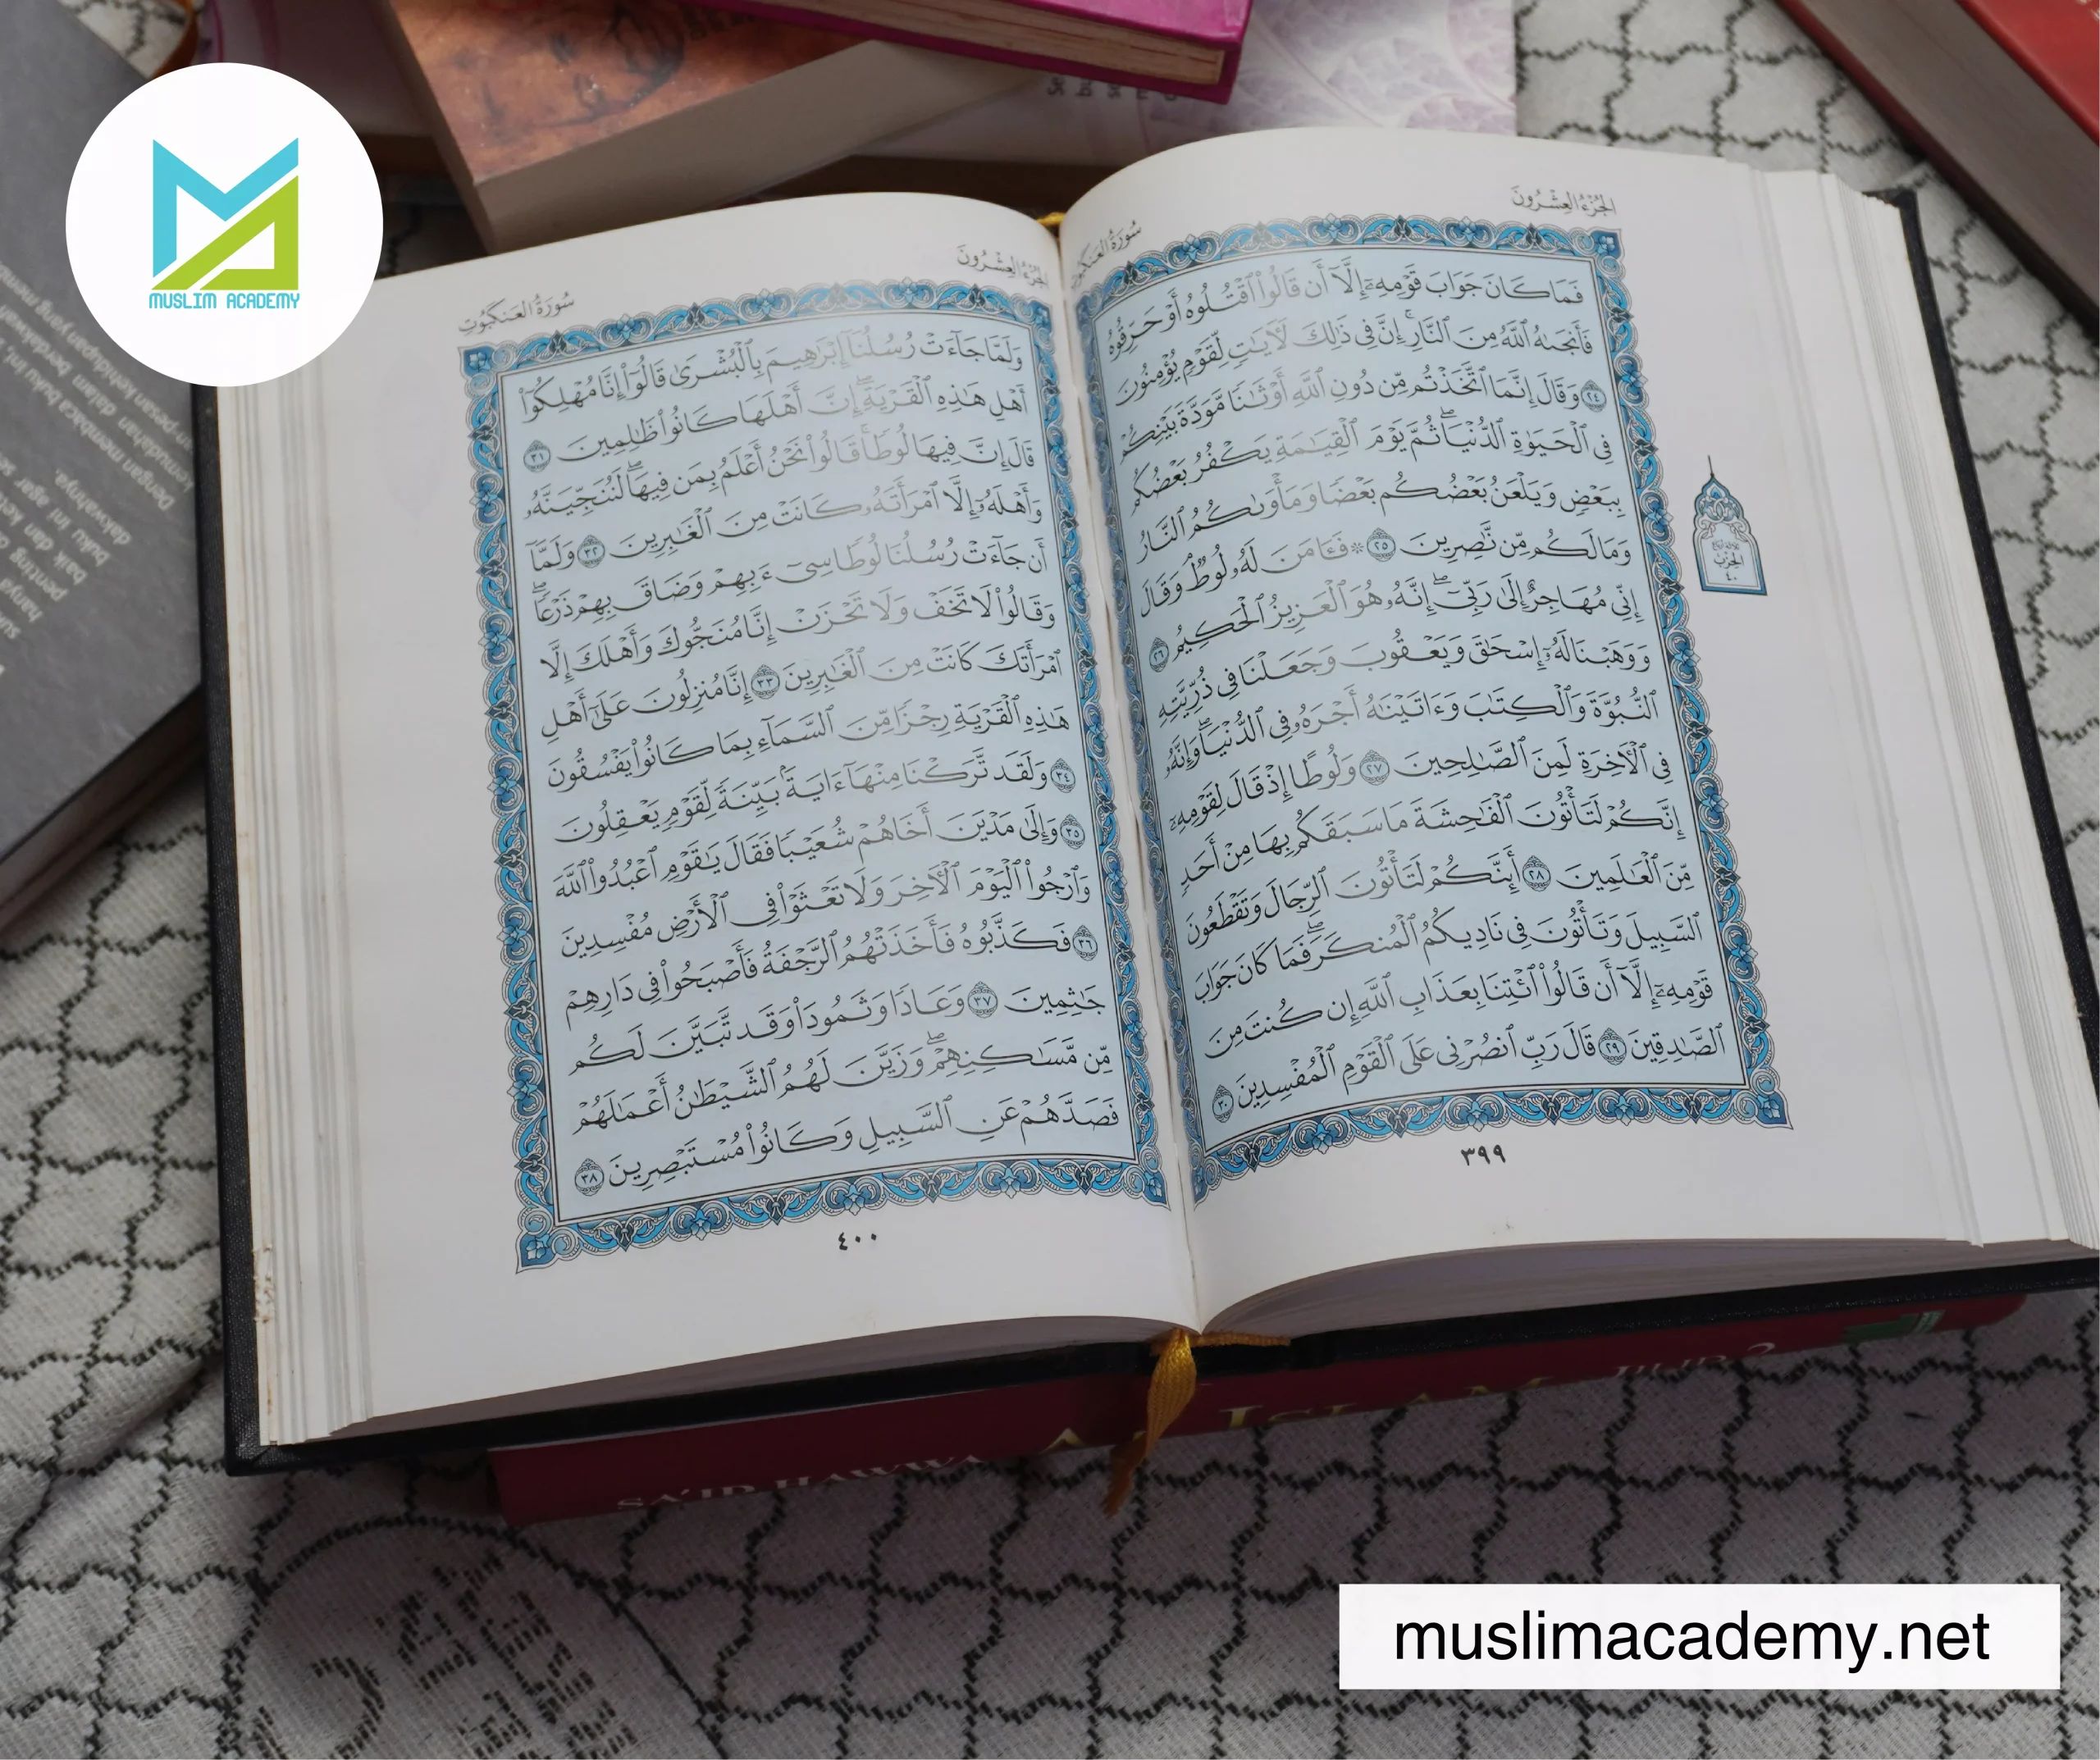 MUSLIM ACADEMY
الجُزْءُ العِشْرُونَ
سُورَةُ العَنكَبُوتِ
فَمَا كَانَ جَوَابَ قَوْمِهِۦٓ إِلَّآ أَن قَالُوا۟ ٱقْتُلُوهُ أَوْ حَرِّقُوهُ
فَأَنجَىٰهُ ٱللَّهُ مِنَ ٱلنَّارِ ۚ إِنَّ فِى ذَٰلِكَ لَءَايَٰتٍ لِّقَوْمٍ يُؤْمِنُونَ
٢٤ وَقَالَ إِنَّمَا ٱتَّخَذْتُم مِّن دُونِ ٱللَّهِ أَوْثَٰنًا مَّوَدَّةَ بَيْنِكُمْ
فِى ٱلْحَيَوٰةِ ٱلدُّنْيَا ۖ ثُمَّ يَوْمَ ٱلْقِيَٰمَةِ يَكْفُرُ بَعْضُكُم
بِبَعْضٍ وَيَلْعَنُ بَعْضُكُم بَعْضًا وَمَأْوَىٰكُمُ ٱلنَّارُ
وَمَا لَكُم مِّن نَّٰصِرِينَ ٢٥ ۞ فَـَٔامَنَ لَهُۥ لُوطٌ ۘ وَقَالَ
إِنِّى مُهَاجِرٌ إِلَىٰ رَبِّىٓ ۖ إِنَّهُۥ هُوَ ٱلْعَزِيزُ ٱلْحَكِيمُ ٢٦
وَوَهَبْنَا لَهُۥٓ إِسْحَٰقَ وَيَعْقُوبَ وَجَعَلْنَا فِى ذُرِّيَّتِهِ
ٱلنُّبُوَّةَ وَٱلْكِتَٰبَ وَءَاتَيْنَٰهُ أَجْرَهُۥ فِى ٱلدُّنْيَا ۖ وَإِنَّهُۥ
فِى ٱلْءَاخِرَةِ لَمِنَ ٱلصَّٰلِحِينَ ٢٧ وَلُوطًا إِذْ قَالَ لِقَوْمِهِۦٓ
إِنَّكُمْ لَتَأْتُونَ ٱلْفَٰحِشَةَ مَا سَبَقَكُم بِهَا مِنْ أَحَدٍ
مِّنَ ٱلْعَٰلَمِينَ ٢٨ أَئِنَّكُمْ لَتَأْتُونَ ٱلرِّجَالَ وَتَقْطَعُونَ
ٱلسَّبِيلَ وَتَأْتُونَ فِى نَادِيكُمُ ٱلْمُنكَرَ ۖ فَمَا كَانَ جَوَابَ
قَوْمِهِۦٓ إِلَّآ أَن قَالُوا۟ ٱئْتِنَا بِعَذَابِ ٱللَّهِ إِن كُنتَ مِنَ
ٱلصَّٰدِقِينَ ٢٩ قَالَ رَبِّ ٱنصُرْنِى عَلَى ٱلْقَوْمِ ٱلْمُفْسِدِينَ ٣٠
٣٩٩
الحِزْبُ
٤٠
الجُزْءُ العِشْرُونَ
سُورَةُ العَنكَبُوتِ
وَلَمَّا جَآءَتْ رُسُلُنَآ إِبْرَٰهِيمَ بِٱلْبُشْرَىٰ قَالُوٓا۟ إِنَّا مُهْلِكُوٓا۟
أَهْلِ هَٰذِهِ ٱلْقَرْيَةِ ۖ إِنَّ أَهْلَهَا كَانُوا۟ ظَٰلِمِينَ ٣١
قَالَ إِنَّ فِيهَا لُوطًا ۚ قَالُوا۟ نَحْنُ أَعْلَمُ بِمَن فِيهَا ۖ لَنُنَجِّيَنَّهُۥ
وَأَهْلَهُۥٓ إِلَّا ٱمْرَأَتَهُۥ كَانَتْ مِنَ ٱلْغَٰبِرِينَ ٣٢ وَلَمَّآ
أَن جَآءَتْ رُسُلُنَا لُوطًا سِىٓءَ بِهِمْ وَضَاقَ بِهِمْ ذَرْعًا ۖ
وَقَالُوا۟ لَا تَخَفْ وَلَا تَحْزَنْ إِنَّا مُنَجُّوكَ وَأَهْلَكَ إِلَّا
ٱمْرَأَتَكَ كَانَتْ مِنَ ٱلْغَٰبِرِينَ ٣٣ إِنَّا مُنزِلُونَ عَلَىٰٓ أَهْلِ
هَٰذِهِ ٱلْقَرْيَةِ رِجْزًا مِّنَ ٱلسَّمَآءِ بِمَا كَانُوا۟ يَفْسُقُونَ
٣٤ وَلَقَد تَّرَكْنَا مِنْهَآ ءَايَةًۢ بَيِّنَةً لِّقَوْمٍ يَعْقِلُونَ
٣٥ وَإِلَىٰ مَدْيَنَ أَخَاهُمْ شُعَيْبًا فَقَالَ يَٰقَوْمِ ٱعْبُدُوا۟ ٱللَّهَ
وَٱرْجُوا۟ ٱلْيَوْمَ ٱلْءَاخِرَ وَلَا تَعْثَوْا۟ فِى ٱلْأَرْضِ مُفْسِدِينَ
٣٦ فَكَذَّبُوهُ فَأَخَذَتْهُمُ ٱلرَّجْفَةُ فَأَصْبَحُوا۟ فِى دَارِهِمْ
جَٰثِمِينَ ٣٧ وَعَادًا وَثَمُودَا۟ وَقَد تَّبَيَّنَ لَكُم
مِّن مَّسَٰكِنِهِمْ ۖ وَزَيَّنَ لَهُمُ ٱلشَّيْطَٰنُ أَعْمَٰلَهُمْ
فَصَدَّهُمْ عَنِ ٱلسَّبِيلِ وَكَانُوا۟ مُسْتَبْصِرِينَ ٣٨
٤٠٠
SA'ID HAWWA
ISLAM
JILID 2
muslimacademy.net